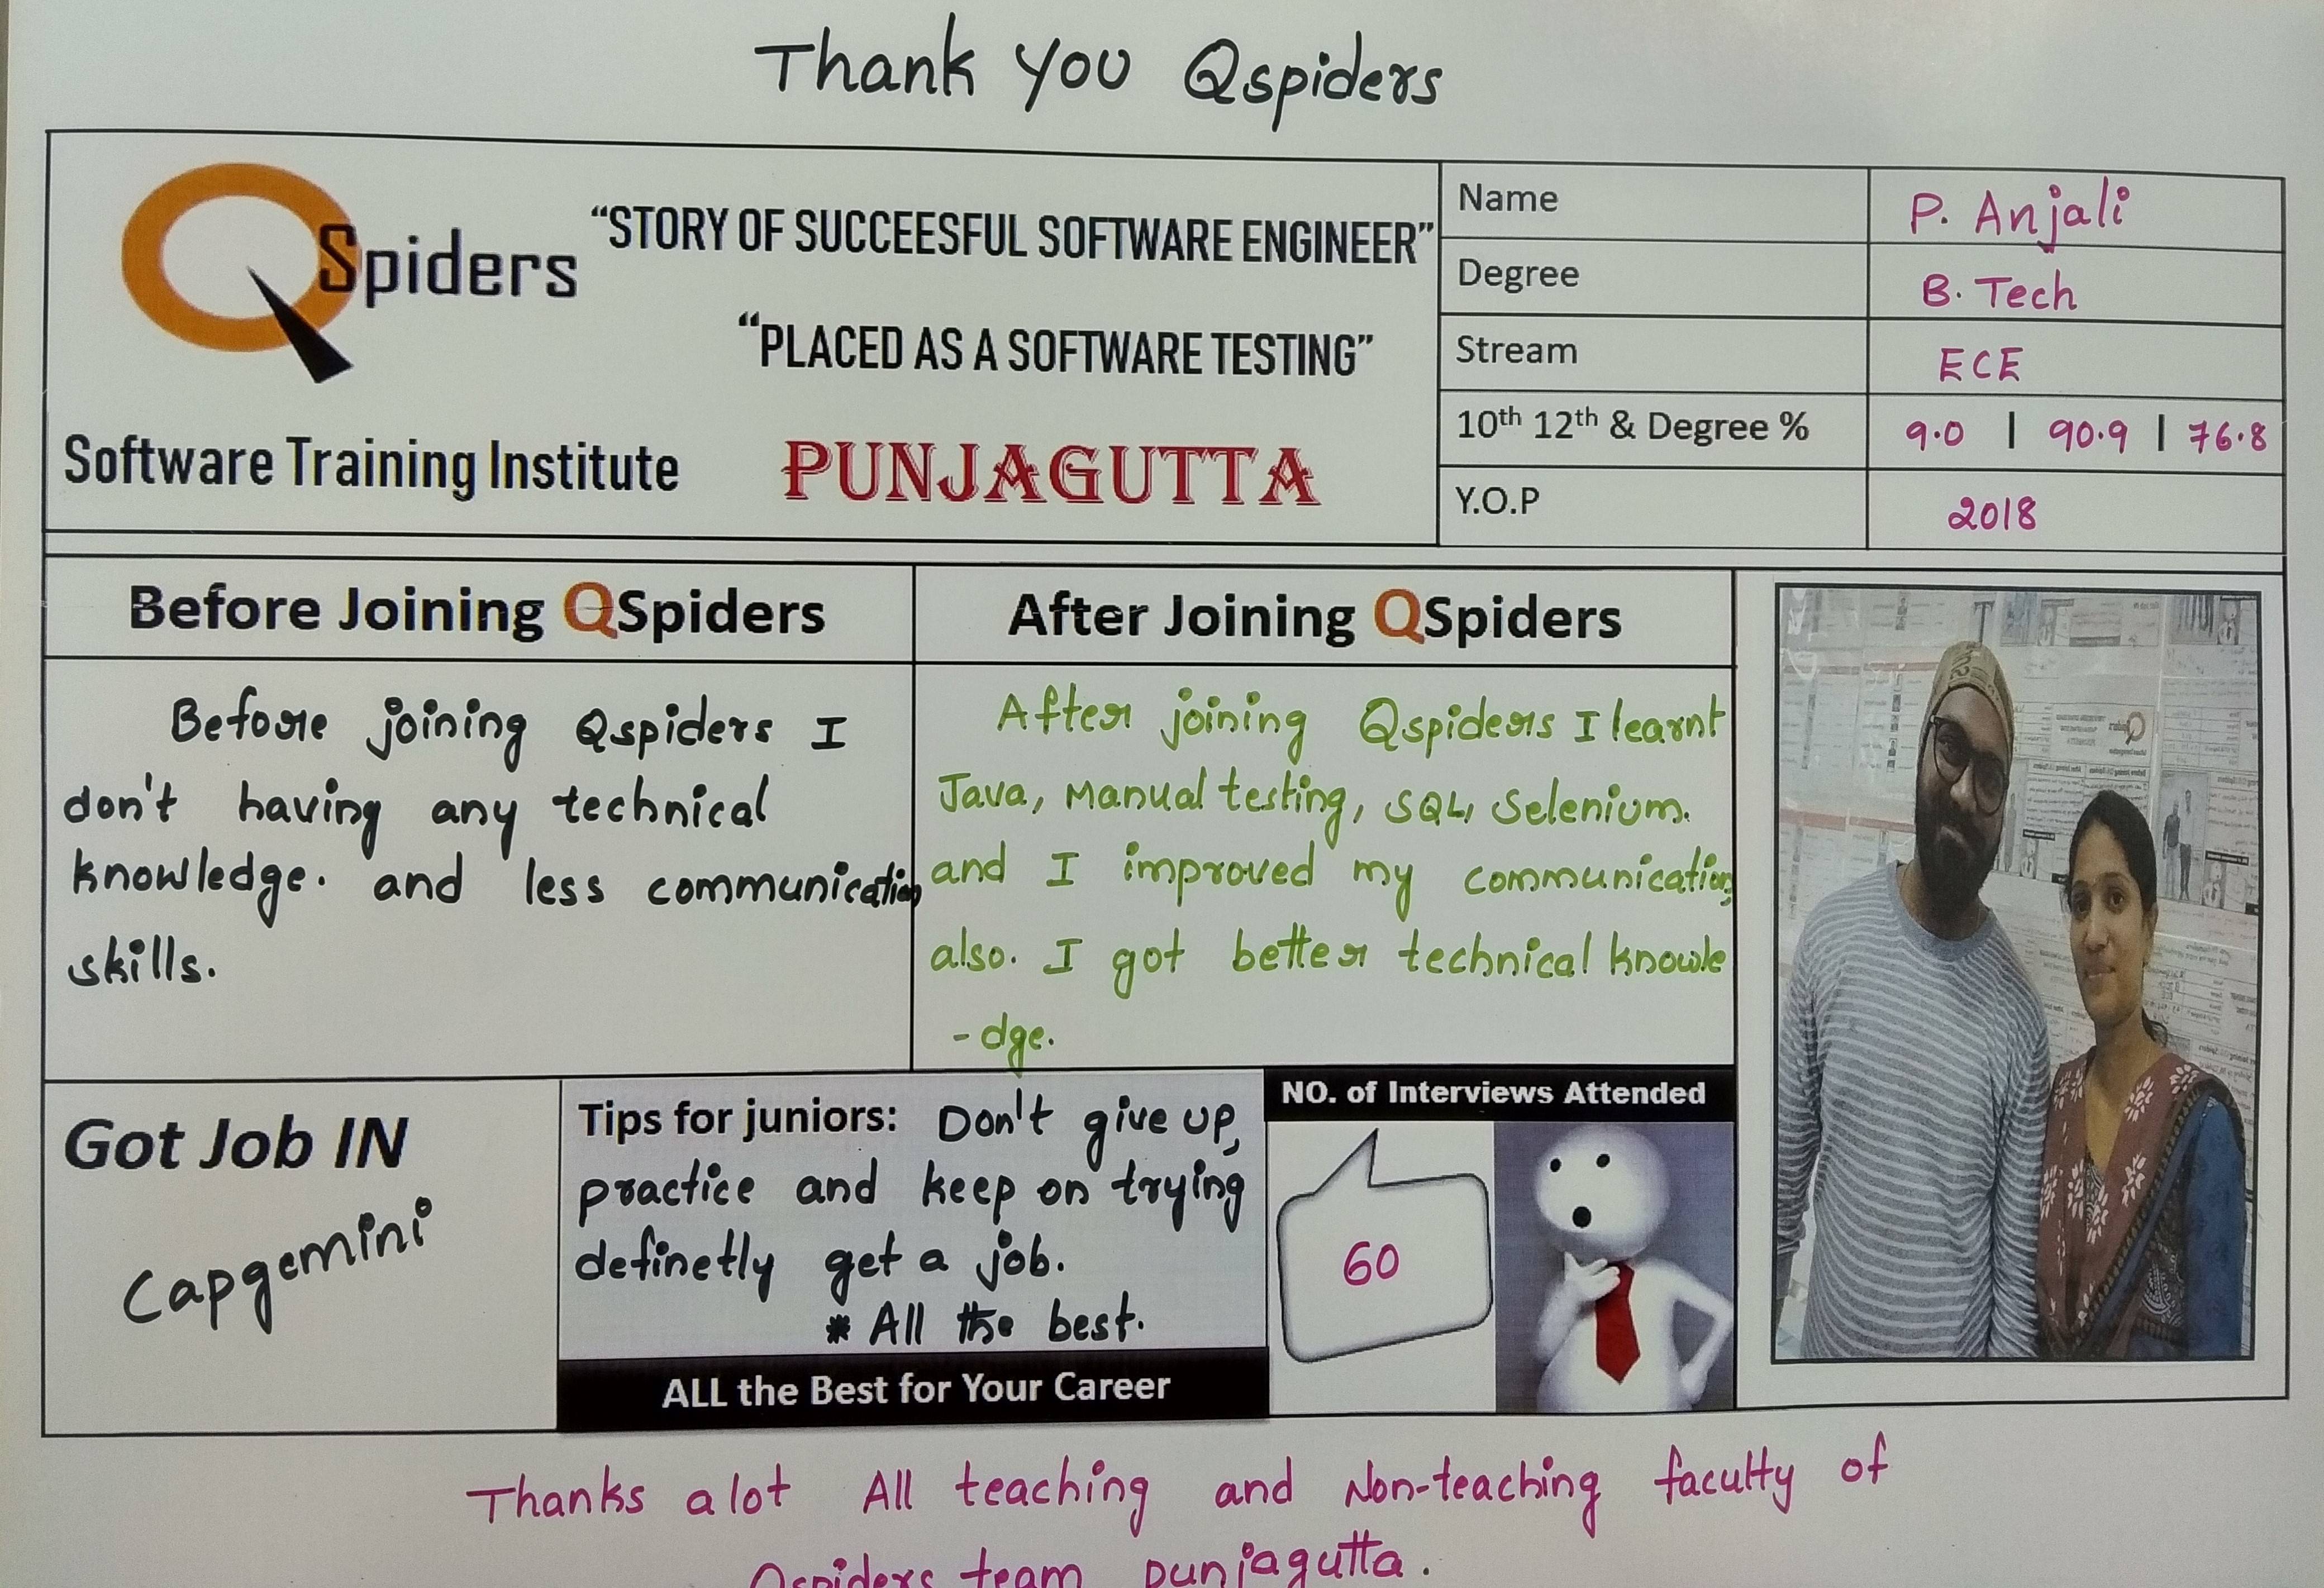 Thank you Qspiders
QSpiders
"STORY OF SUCCEESFUL SOFTWARE ENGINEER"
"PLACED AS A SOFTWARE TESTING"
Software Training Institute
PUNJAGUTTA
Name P. Anjali
Degree B. Tech
Stream ECE
10th 12th & Degree % 9.0 | 90.9 | 76.8
Y.O.P 2018
Before Joining QSpiders
Before joining Qspiders I
don't having any technical
knowledge. and less communication
skills.
After Joining QSpiders
After joining Qspiders I learnt
Java, Manual testing, SQL, Selenium.
and I improved my communication
also. I got better technical knowle
-dge.
Got Job IN
Capgemini
Tips for juniors: Don't give up,
practice and keep on trying
definetly get a job.
* All the best.
ALL the Best for Your Career
NO. of Interviews Attended
60
Thanks alot All teaching and Non-teaching faculty of
Qspiders team punjagutta.